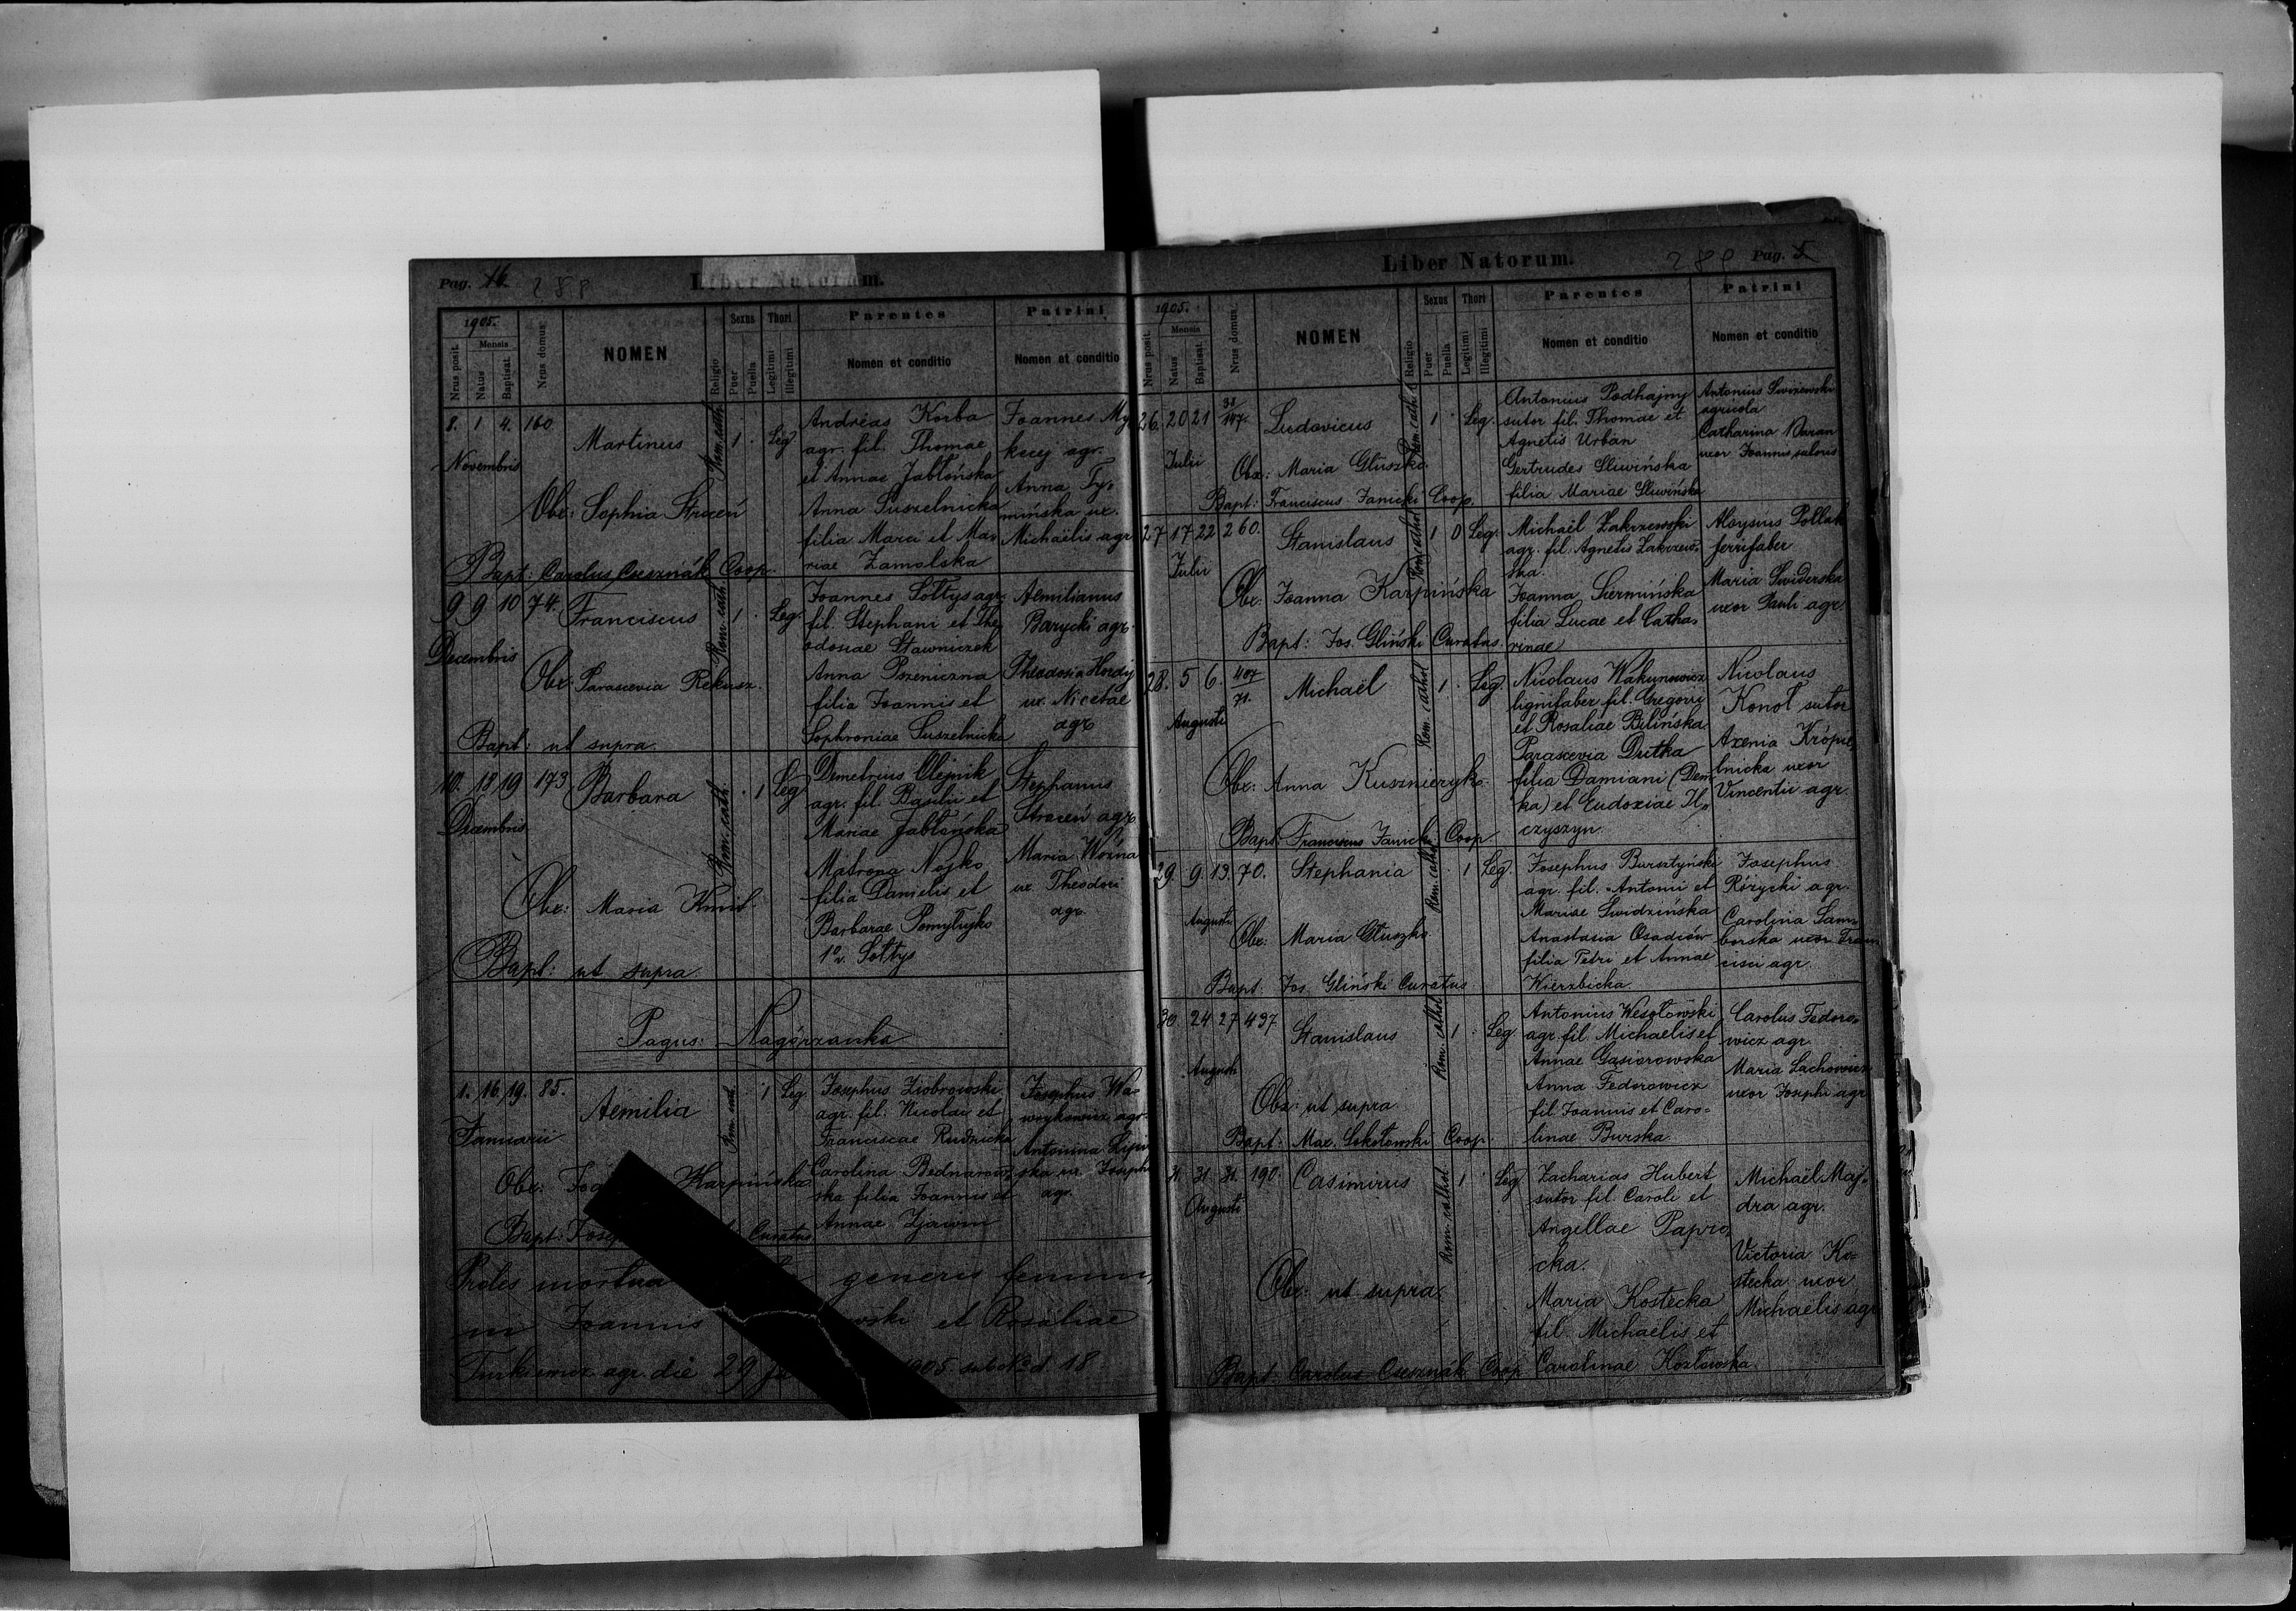 Pag. 16.
288
Liber Natorum.
1905.
Nrus posit.
Mensis
Natus
Baptisat.
Nrus domus
NOMEN
Religio
Sexus
Puer
Puella
Thori
Legitimi
Illegitimi
Parentes
Nomen et conditio
Patrini
Nomen et conditio
8. 1 4. 160
Novembris
Martinus
Rom. cath.
1 . Leg.
Andreas Korba
agr. fil. Thomae
et Annae Jabłońska
Anna Suszelnicka
filia Marci et Ma-
riae Zamolska
Joannes My-
kcej agr.
Anna Ty-
mińska ux.
Michaëlis agr.
Obx: Sophia Stroceń
Bapt: Carolus Csesznák Coop.
9 9 10 74.
Decembris
Franciscus
Rom. cath.
1 . Leg.
Joannes Sołtys agr.
fil. Stephani et The-
odosiae Stawniczek
Anna Pszeniczna
filia Joannis et
Sophroniae Suszelnicka
Aemilianus
Barycki agr.
Theodosia Hordij
ux. Nicetae
agr.
Obx: Parascevia Rekusz.
Bapt: ut supra.
10. 18 19 173
Decembris
Barbara
Rom. cath.
. 1 Leg
Demetrius Olejnik
agr. fil. Basilii et
Mariae Jabłońska
Matrona Nojko
filia Danielis et
Barbarae Pomyłujko
1º v. Sołtys
Stephanus
Stroceń agr.
Maria Woźna
ux. Theodori
agr.
Obx: Maria Kmit.
Bapt: ut supra
Pagus: Nagórzanka
1. 16. 19. 85.
Januarii
Aemilia
Rom. cath.
. 1 Leg.
Josephus Ziobrowski
agr. fil. Nicolai et
Franciscae Rudnicka
Carolina Bednarow-
ska filia Joannis et
Annae Zjawin
Josephus Wa-
wrykowicz agr.
Antonina Lipiń-
ska ux. Josephi
agr.
Obx: Karpińska
Bapt: Curatus
Proles mortua generis femini-
ni Joannis et Rosaliae
Turkiewicz agr. die 29 1905. sub No d. 18
Liber Natorum.
289
Pag. 5
1905.
Nrus posit.
Mensis
Natus
Baptisat.
Nrus domus
NOMEN
Religio
Sexus
Puer
Puella
Thori
Legitimi
Illegitimi
Parentes
Nomen et conditio
Patrini
Nomen et conditio
26. 20 21
Julii
Ludovicus
Rom. cath.
1 . Leg.
Antonius Podhajny
sutor fil. Thomae et
Agnetis Urban
Gertrudes Sliwińska
filia Mariae Sliwińska
Antonius Swiżewski
agricola
Catharina Baran
uxor Joannis sutoris
Obx: Maria Głuszko.
Bapt: Franciscus Janicki Coop.
27 17 22 260.
Julii
Stanislaus
Rom. cathol.
1 0 Leg.
Michaël Zakrzewski
agr. fil. Agnetis Zakrzew-
ska.
Joanna Siermińska
filia Lucae et Catha-
rinae
Aloysius Pollak
ferrifaber
Maria Swiderska
uxor Pauli agr.
Obx: Joanna Karpińska
Bapt: Jos. Gliński Curatus.
28. 5 6. 407/71.
Augusti
Michaël
Rom. cathol
1 . Leg.
Nicolaus Wakunowicz
lignifaber fil. Gregorii
et Rosaliae Bilińska.
Parascevia Dutka
filia Damiani (Dem-
ka) et Eudoxiae Il-
czyszyn.
Nicolaus
Konot sutor
Axenia Kropiel-
nicka uxor
Vincentii agr.
Obx: Anna Kusznieryk.
Bapt: Franciscus Janicki Coop.
29. 9. 13. 70.
Augusti
Stephania
Rom. cathol
. 1 Leg.
Josephus Bursztyński
agr. fil. Antonii et
Mariae Swidzińska
Anastasia Osadców
filia Petri et Annae
Wierzbicka.
Josephus
Różycki agr.
Carolina Sam-
borska uxor Fran-
cisci agr.
Obx: Maria Głuszko
Bapt: Jos. Gliński Curatus
30 24 27 437
Augusti
Stanislaus
Rom. cathol
1 . Leg
Antonius Wesołowski
agr. fil. Michaelis et
Annae Gąsiorowska
Anna Fedorowicz
fil. Joannis et Caro-
linae Burska.
Carolus Fedoro-
wicz agr.
Maria Lachowicz
uxor Josephi agr
Obx: ut supra.
Bapt: Max. Sokołowski Coop.
31 31 31. 190.
Augusti
Casimirus
Rom. cathol
1 . Leg.
Zacharias Hubert
sutor fil. Caroli et
Angellae Papro-
cka.
Maria Kostecka
fil. Michaëlis et
Carolinae Kozłowska.
Michaël Maj-
dra agr.
Victoria Ko-
stecka uxor
Michaëlis agr
Obx: ut supra.
Bapt: Carolus Csesznák Coop